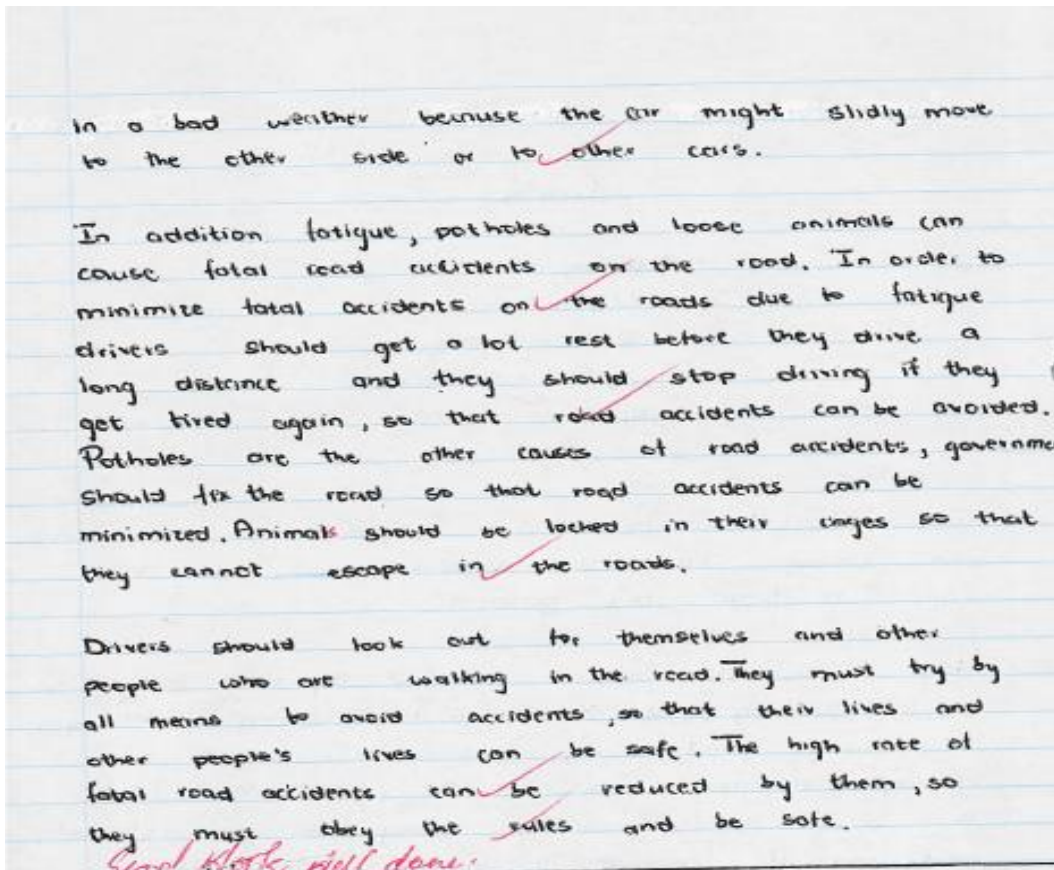 in a bad weather because the car might slidly move
to the other side or to other cars.
In addition fatigue, potholes and loose animals can
cause fatal road accidents on the road. In order to
minimize fatal accidents on the roads due to fatigue
drivers should get a lot rest before they drive a
long distance and they should stop driving if they
get tired again, so that road accidents can be avoided.
Potholes are the other causes of road accidents, governme
should fix the road so that road accidents can be
minimized. Animals should be locked in their cages so that
they cannot escape in the roads.
Drivers should look out for themselves and other
people who are walking in the road. They must try by
all means to avoid accidents, so that their lives and
other people's lives can be safe. The high rate of
fatal road accidents can be reduced by them, so
they must obey the rules and be safe.
Good Work, well done.